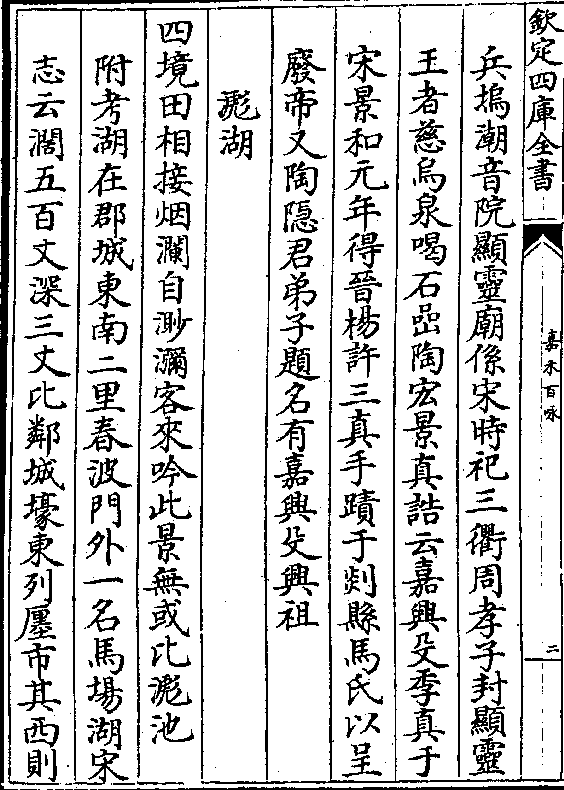 欽定四庫全書
嘉禾百咏
二
兵塢潮音院顯靈廟係宋時祀三衢周孝子封顯靈
王者慈烏泉喝石嵒陶宏景真誥云嘉興殳季真于
宋景和元年得晉楊許三真手蹟于剡縣馬氏以呈
廢帝又陶隐君弟子題名有嘉興殳興祖
彪湖
四境田相接烟瀾自渺瀰客來吟此景無或比滮池
附考湖在郡城東南二里春波門外一名馬場湖宋
志云濶五百丈深三丈比鄰城壕東列廛市其西則